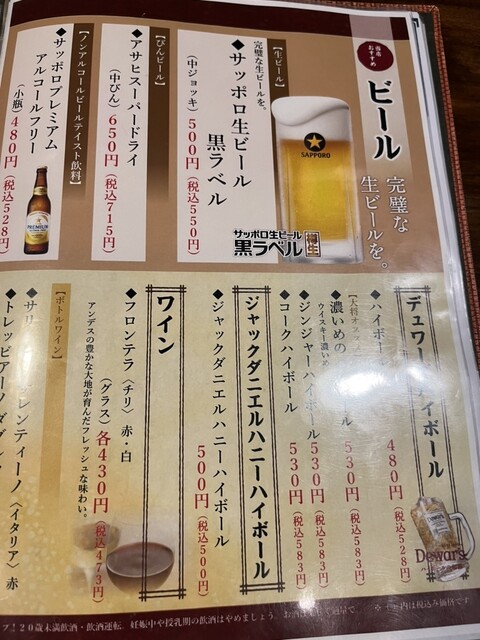 当店
おすすめ
ビール
完璧な
生ビールを。
SAPPORO
サッポロ生ビール
黒ラベル
樽生
【生ビール】
完璧な生ビールを。
◆サッポロ生ビール
黒ラベル
(中ジョッキ) 500円(税込550円)
【びんビール】
◆アサヒスーパードライ
(中びん) 650円(税込715円)
【ノンアルコールビールテイスト飲料】
◆サッポロプレミアム
アルコールフリー
(小瓶) 480円(税込528円)
PREMIUM
デュワー
イボール
◆ハイボール
480円(税込528円)
【大将オス
◆濃いめの
ウイスキー濃いめ
ール
530円(税込583円)
◆ジンジャーハイボール
530円(税込583円)
◆コークハイボール
530円(税込583円)
Dewar's
ジャックダニエルハニーハイボール
◆ジャックダニエルハニーハイボール
500円(税込550円)
ワイン
◆フロンテラ〈チリ〉赤・白
(グラス) 各430円(税込473円)
アンデスの豊かな大地が育んだフレッシュな味わい。
【ボトルワイン】
◆サリ
レンティーノ〈イタリア〉赤
◆トレッビアーノ
20歳未満飲酒・飲酒運転、妊娠中や授乳期の飲酒はやめましょう。
内は税込み価格です